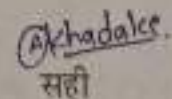 Akhadalce.
सही